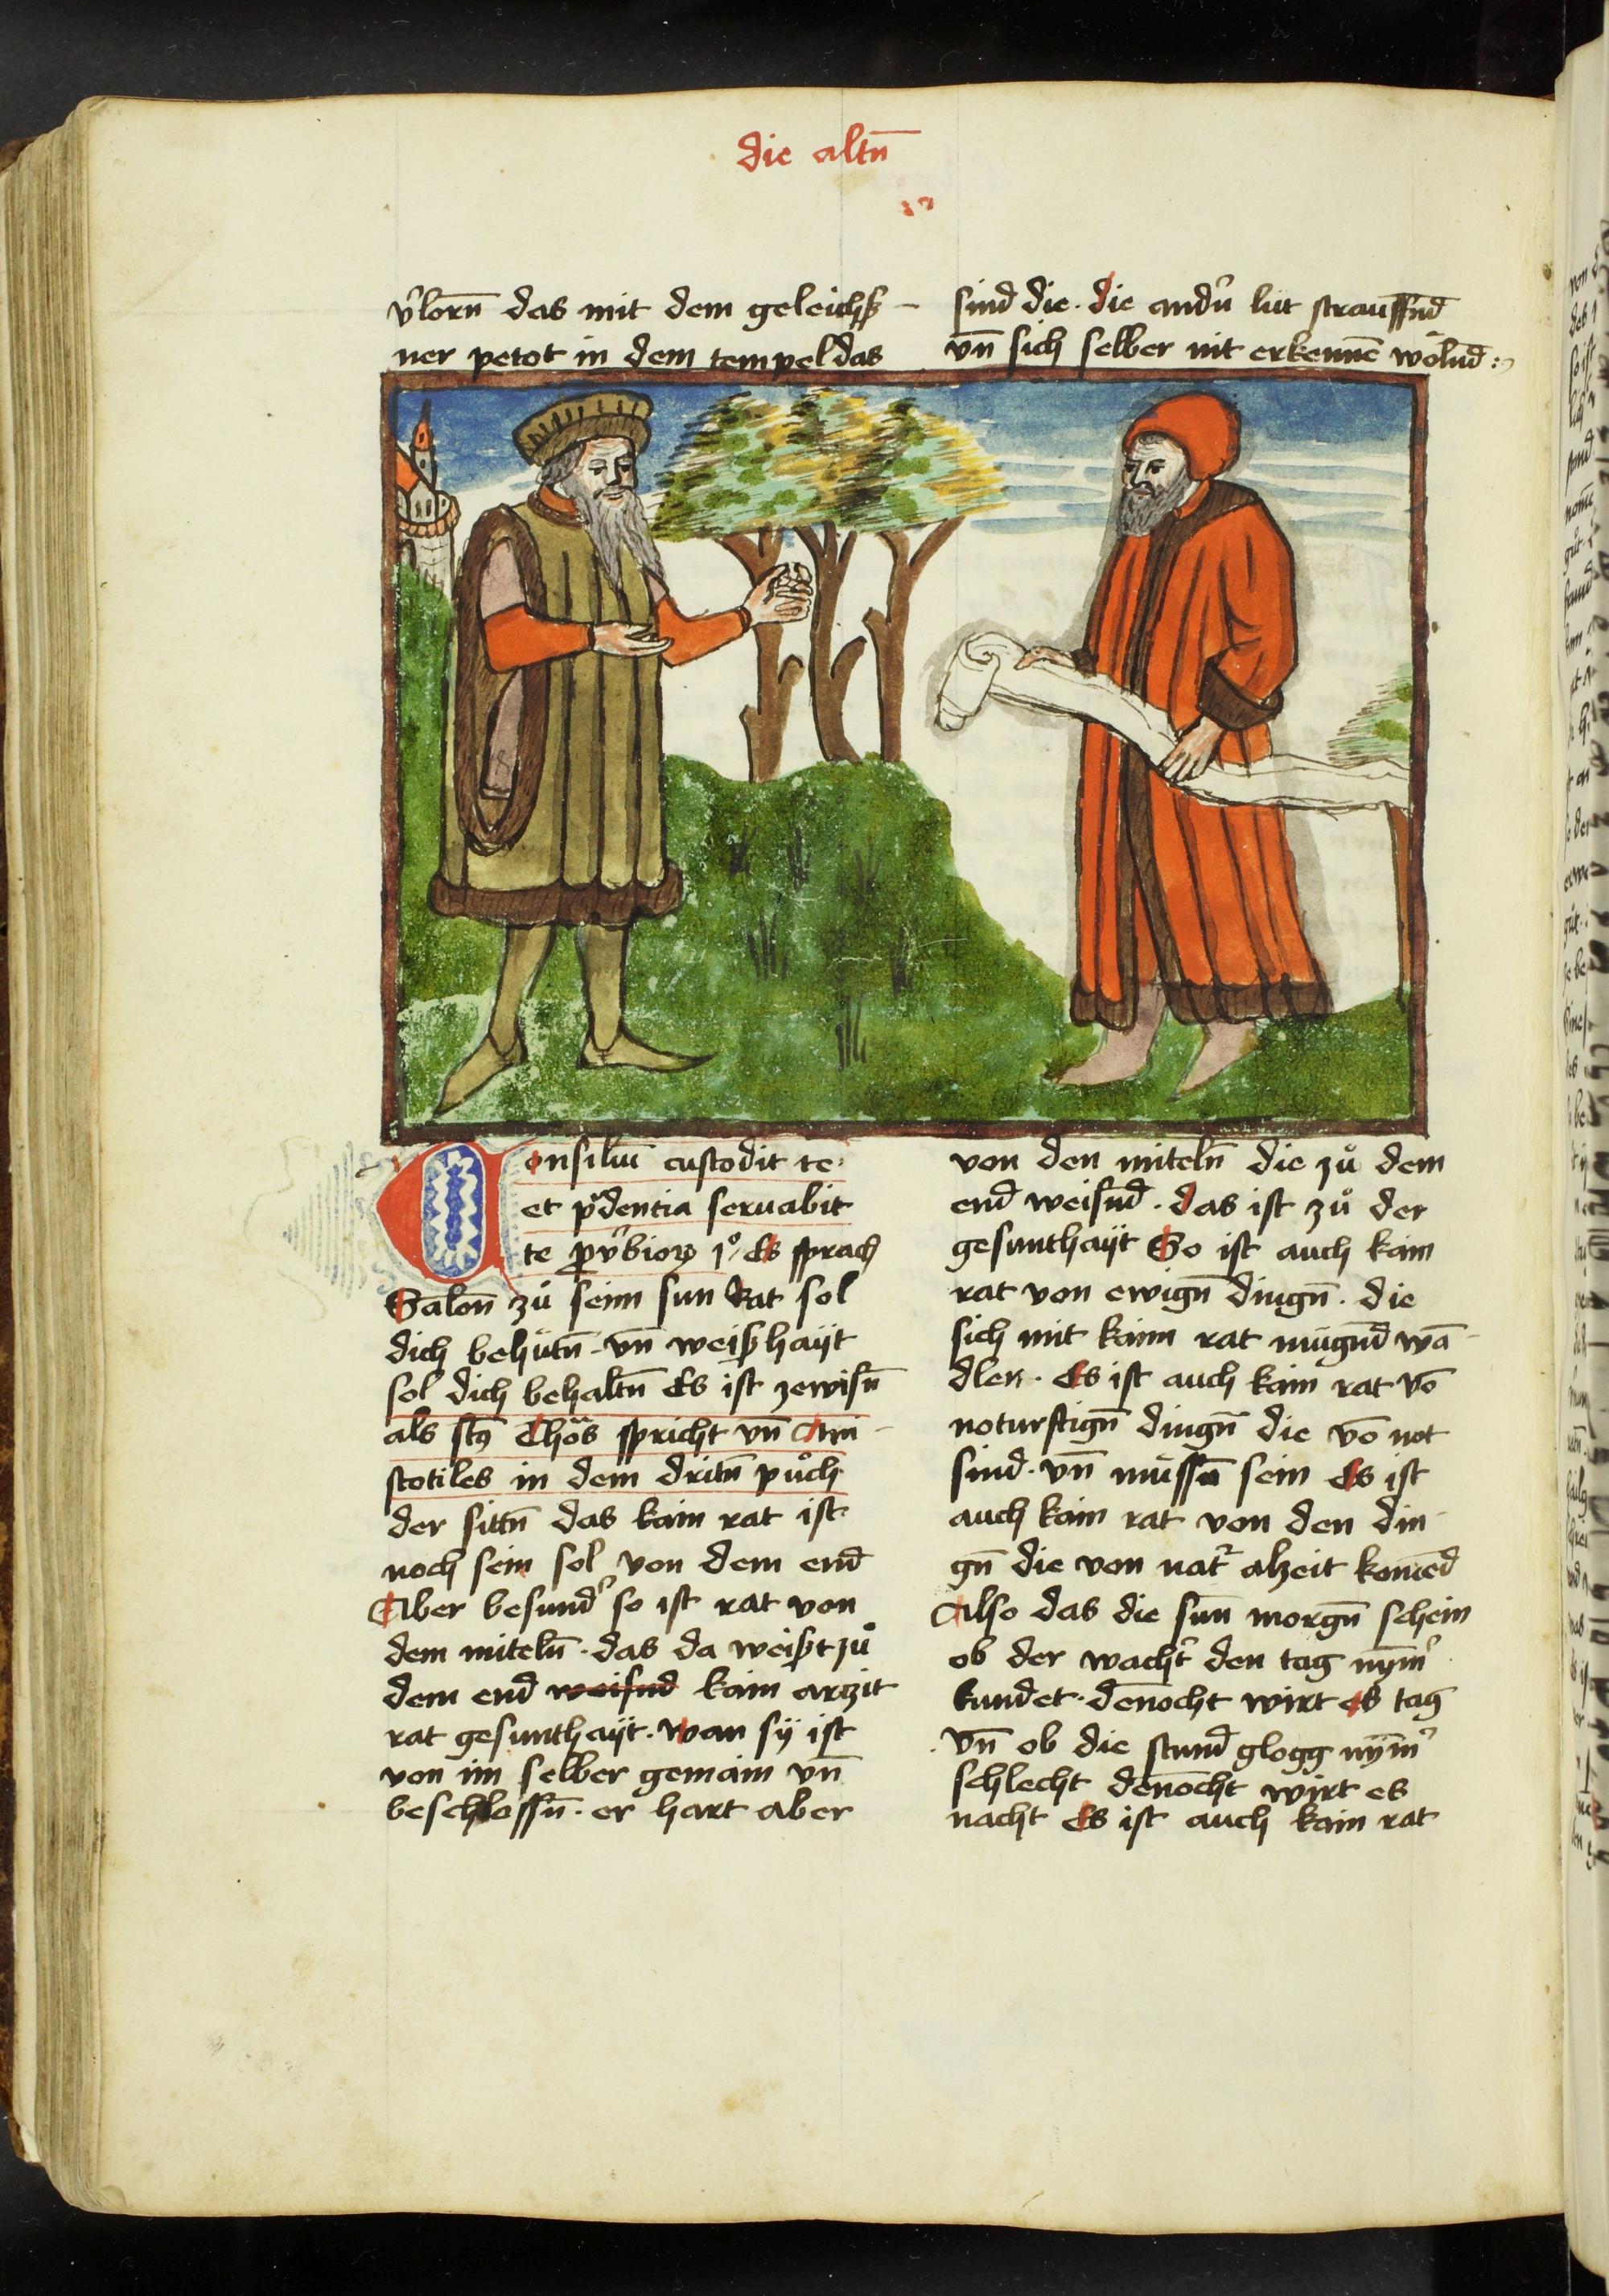 die altn̄
v̓lorn̄ das mit dem geleichß-
ner petot in dem tempel das
sind die . die andn̓ lüt strauffnd̄
vn̄ sich selber nit erkennē wölnd̄ :
Consiliū custodit te
et pͬdentia seruabit
te ꝓv̓bioꝝ 1° Es sprach
Salon̄ zů seim sun Rat sol
dich behütn̄ . vn̄ weißhaÿt
sol dich behaltn̄ Es ist zewisn̄
als sts Thōs spricht vn̄ Ari-
stotiles in dem dritn̄ půch
der sittn̄ das kain rat ist
noch sein sol von dem end̄
Aber besund̓ so ist rat von
dem miteln̄ . das da weißt zů
dem end̄ weisnd̄ kain arczit
rat gesunthaÿt . wan sÿ ist
von im selber gemain vn̄
beschlossn̄ . er hart aber
von den miteln̄ die zů dem
end̄ weisnd̄ . das ist zů der
gesunthaÿt So ist auch kain
rat von ewign̄ dingn̄ . die
sich mit kaim rat mügnd̄ wā-
dlen . Es ist auch kain rat vō
noturftign̄ dingn̄ die vō not
sind . vn̄ müssn̄ sein Es ist
auch kain rat von den din-
gn̄ die von nat͛ alzeit komēd
Also das die sun̄ morgn̄ schein
ob der wacht̓ den tag nym̄̓
kundet . den̄ocht wirt es tag
vn̄ ob die stund̄ glogg nÿm̄̓
schlecht den̄ocht wirt es
nacht Es ist auch kain rat